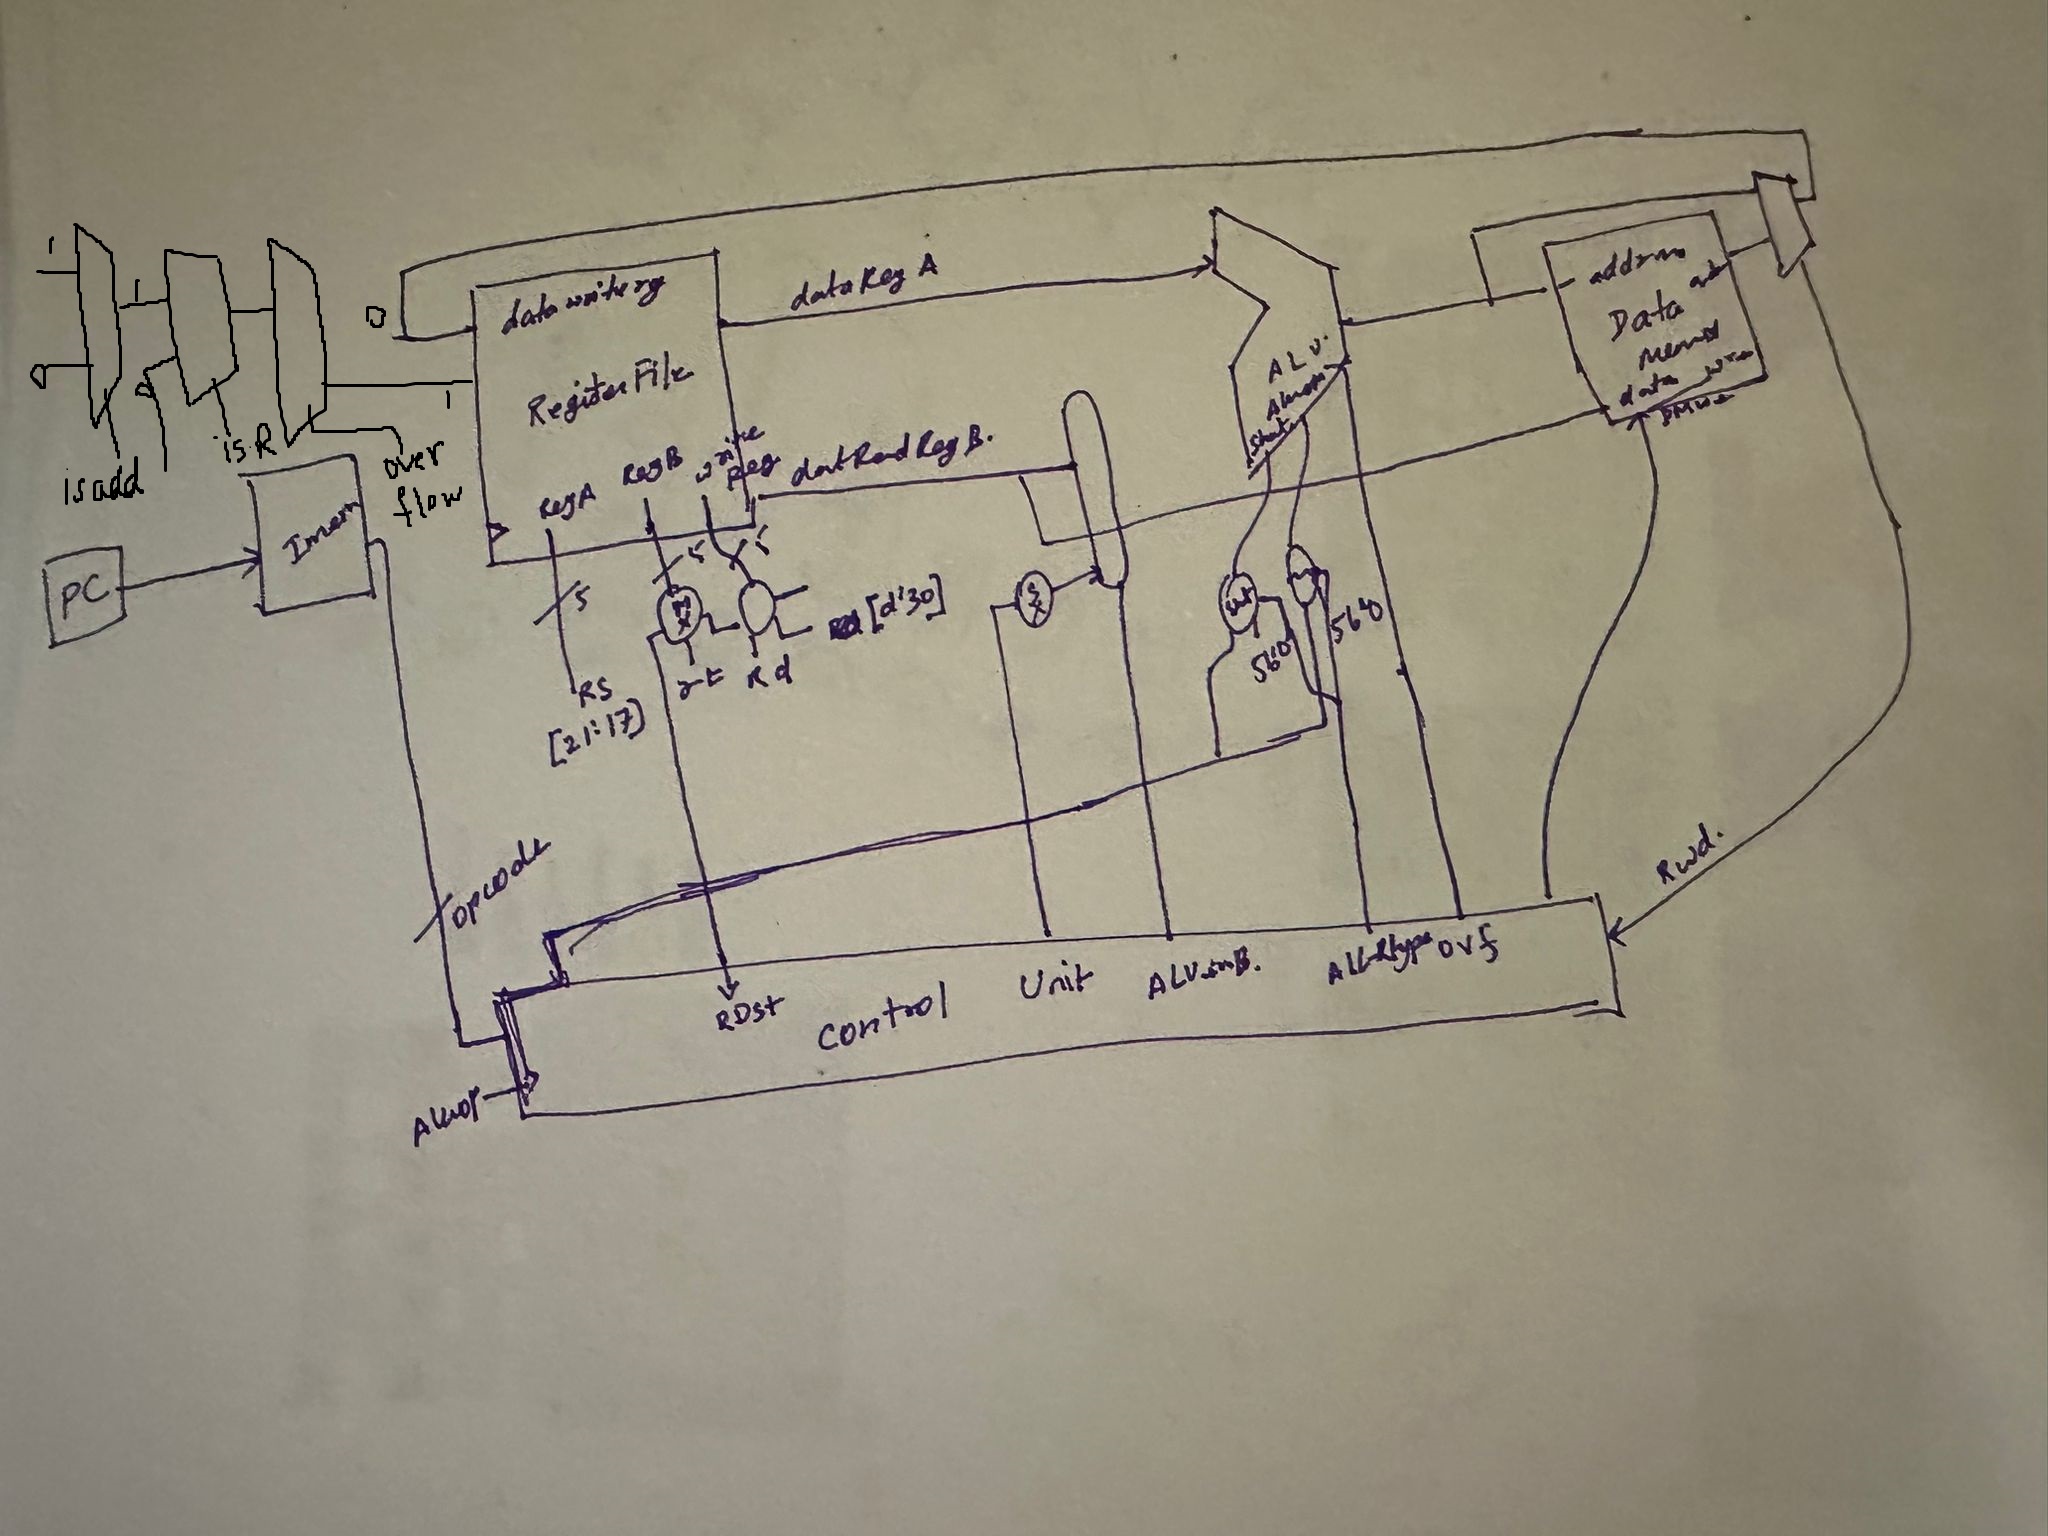 1
0
1
0
is add
is R
over
flow
0
1
PC
Imem
data writereg
Register File
RegA
RegB
write
Reg
5
5
5
RS
[21:17]
rt
Rd
[d'30]
data Reg A
datReadReg B.
sx
ALU.
560
560
address
Data
data
DMwe
Rwd.
opcode
ALUop
RDst
control
Unit
ALUinB.
ovf